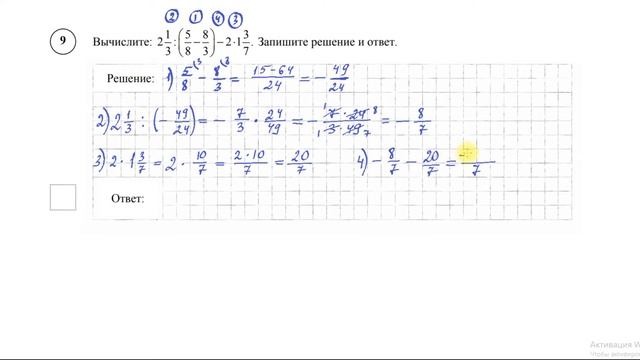 ② ① ④ ③
9 Вычислите: 2 1/3 : (5/8 − 8/3) − 2 · 1 3/7. Запишите решение и ответ.
Решение: 1) 5/8 (3 − 8/3 (8 = 15−64/24 = − 49/24
2) 2 1/3 : (− 49/24) = − 7/3 · 24/49 = − 7 · 24/3 · 49 = − 8/7
3) 2 · 1 3/7 = 2 · 10/7 = 2 · 10/7 = 20/7 4) − 8/7 − 20/7 = −/7
Ответ:
Активация W
Чтобы активиров